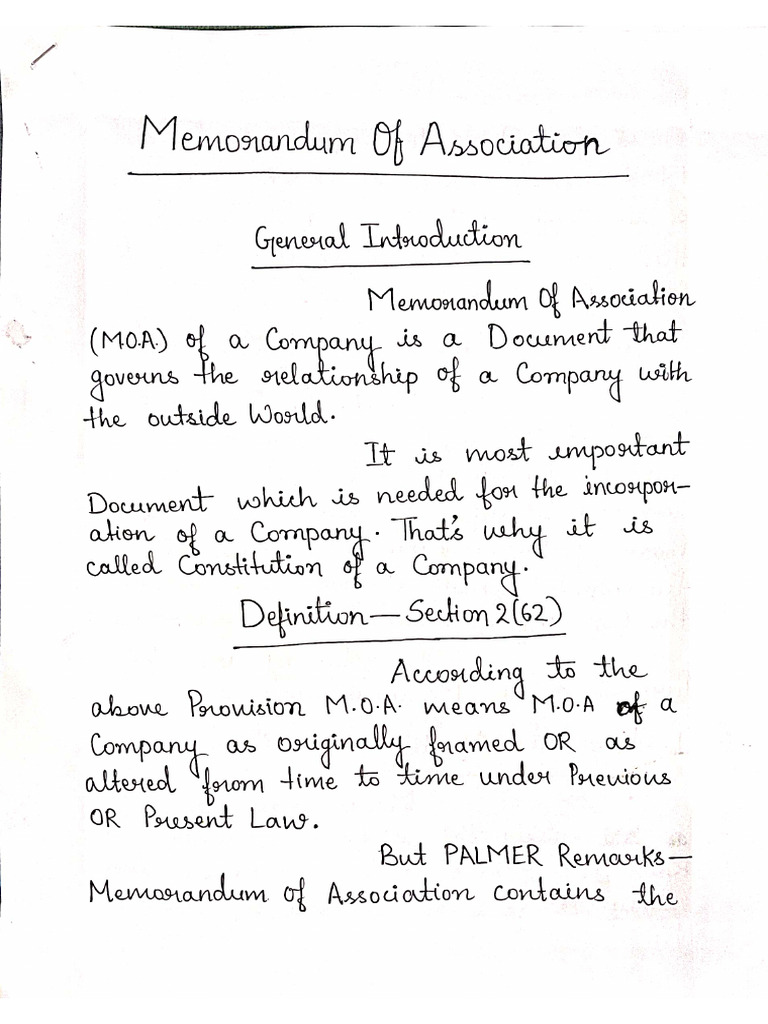 Memorandum Of Association
General Introduction
Memorandum Of Association
(M.O.A.) of a Company is a Document that
governs the relationship of a Company with
the outside World.
It is most important
Document which is needed for the incorpor-
ation of a Company. That's why it is
called Constitution of a Company.
Definition — Section 2(62)
According to the
above Provision M.O.A. means M.O.A of a
Company as originally framed OR as
altered from time to time under Previous
OR Present Law.
But PALMER Remarks—
Memorandum of Association contains the